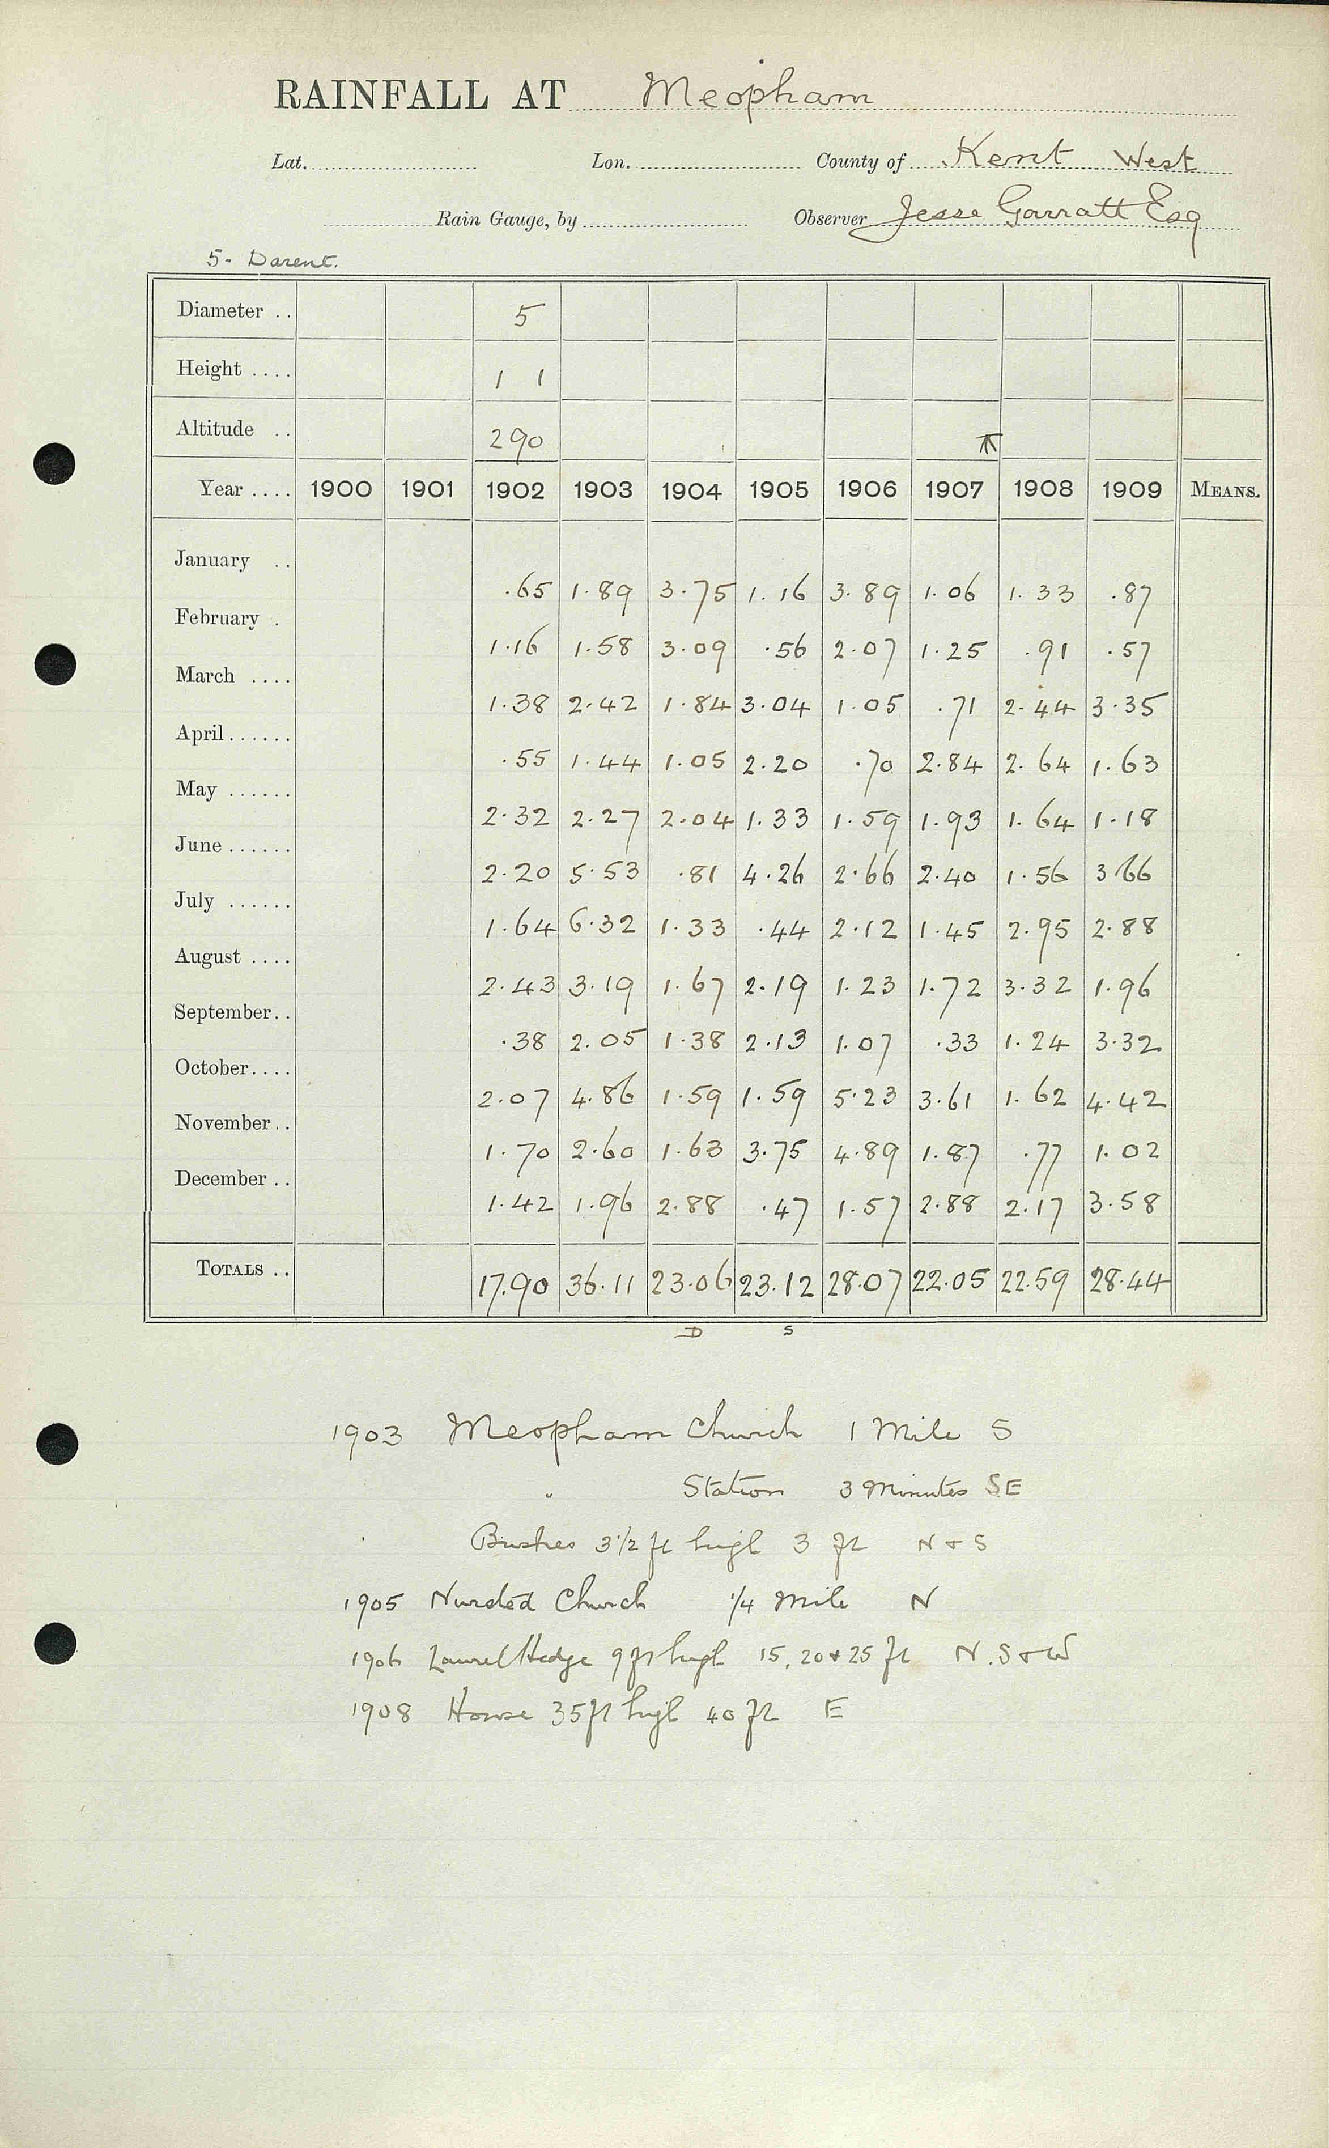 RAINFALL AT Meopham
Lat. Lon. County of Kent West
Rain Gauge, by Observer Jesse Garratt Esq
5. Darent.
Diameter .. 5
Height .... 1 1
Altitude .. 290
Year .... 1900 1901 1902 1903 1904 1905 1906 1907 1908 1909 MEANS.
January .. .65 1.89 3.75 1.16 3.89 1.06 1.33 .87
February . 1.16 1.58 3.09 .56 2.07 1.25 .91 .57
March .... 1.38 2.42 1.84 3.04 1.05 .71 2.44 3.35
April ...... .55 1.44 1.05 2.20 .70 2.84 2.64 1.63
May ...... 2.32 2.27 2.04 1.33 1.59 1.93 1.64 1.18
June ...... 2.20 5.53 .81 4.26 2.66 2.40 1.56 3.66
July ...... 1.64 6.32 1.33 .44 2.12 1.45 2.95 2.88
August .... 2.43 3.19 1.67 2.19 1.23 1.72 3.32 1.96
September .. .38 2.05 1.38 2.13 1.07 .33 1.24 3.32
October .... 2.07 4.86 1.59 1.59 5.23 3.61 1.62 4.42
November .. 1.70 2.60 1.63 3.75 4.89 1.87 .77 1.02
December .. 1.42 1.96 2.88 .47 1.57 2.88 2.17 3.58
TOTALS .. 17.90 36.11 23.06 23.12 28.07 22.05 22.59 28.44
D S
1903 Meopham Church 1 Mile S
" Station 3 Minutes SE
Bushes 3 1/2 ft high 3 ft N + S
1905 Nursted Church 1/4 Mile N
1906 Laurel Hedge 9 ft high 15, 20 + 25 ft N. S + W
1908 House 35 ft high 40 ft E